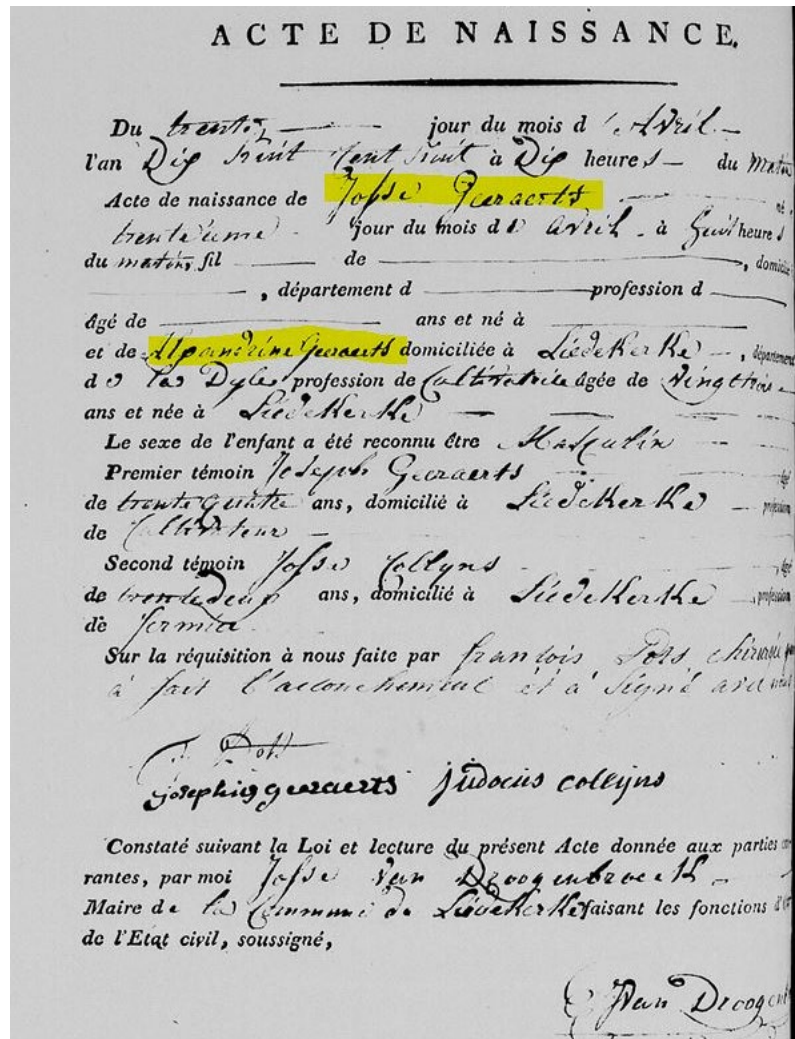 ACTE DE NAISSANCE.
Du trente jour du mois d'Avril
l'an Dix huit Cent huit à Dix heures du Matin
Acte de naissance de Josse Geeraerts né
trentieme jour du mois de avril à huit heures
du matin, fil de , domicilié
, département d profession d
âgé de ans et né à
et de Geeraerts domiciliée à Liedekerke , département
de La Dyle profession de Cultivatrice âgée de Vingt trois
ans et née à Liedekerke
Le sexe de l'enfant a été reconnu être Masculin
Premier témoin Joseph Geeraerts âgé
de trente quatre ans, domicilié à Liedekerke profession
de Cultivateur
Second témoin Josse Collyns âgé
de trente deux ans, domicilié à Liedekerke profession
de fermier
Sur la réquisition à nous faite par francois Pots chirurgien
à fait l'accouchement et à Signé avec nous
Pots
Josephus geeraerts judocus collijns
Constaté suivant la Loi et lecture du présent Acte donnée aux parties
rantes, par moi Josse Van Droogenbroeck
Maire de la Commune de Liedekerke faisant les fonctions
de l'Etat civil, soussigné,
J Van Droogen